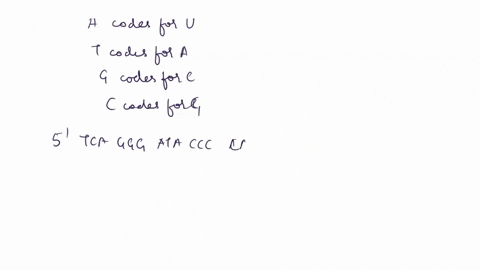 A codes for U
T codes for A
G codes for C
C codes for G
5' TCA GGG ATA CCC